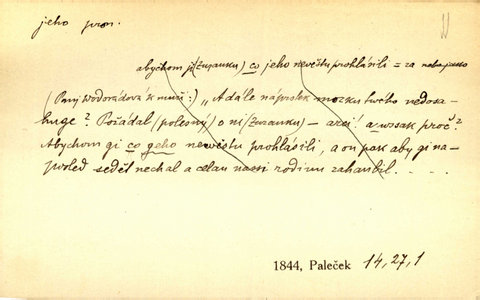 jeho pron.
abychom ji (Zuzanku) co jeho nevěstu prohlásili = za
(Paní Wodorádová k muži:) „A dále naprosek mozku twého nedosa-
huge? Požádal (polesný) o ni (Zuzanku) – arci! a wssak proč?
Abychom gi co geho newěstu prohlásili, a on pak aby gi na-
posled sedět nechal a celau nassi rodinu zahanbil. . . . .
1844, Paleček 14, 27, 1